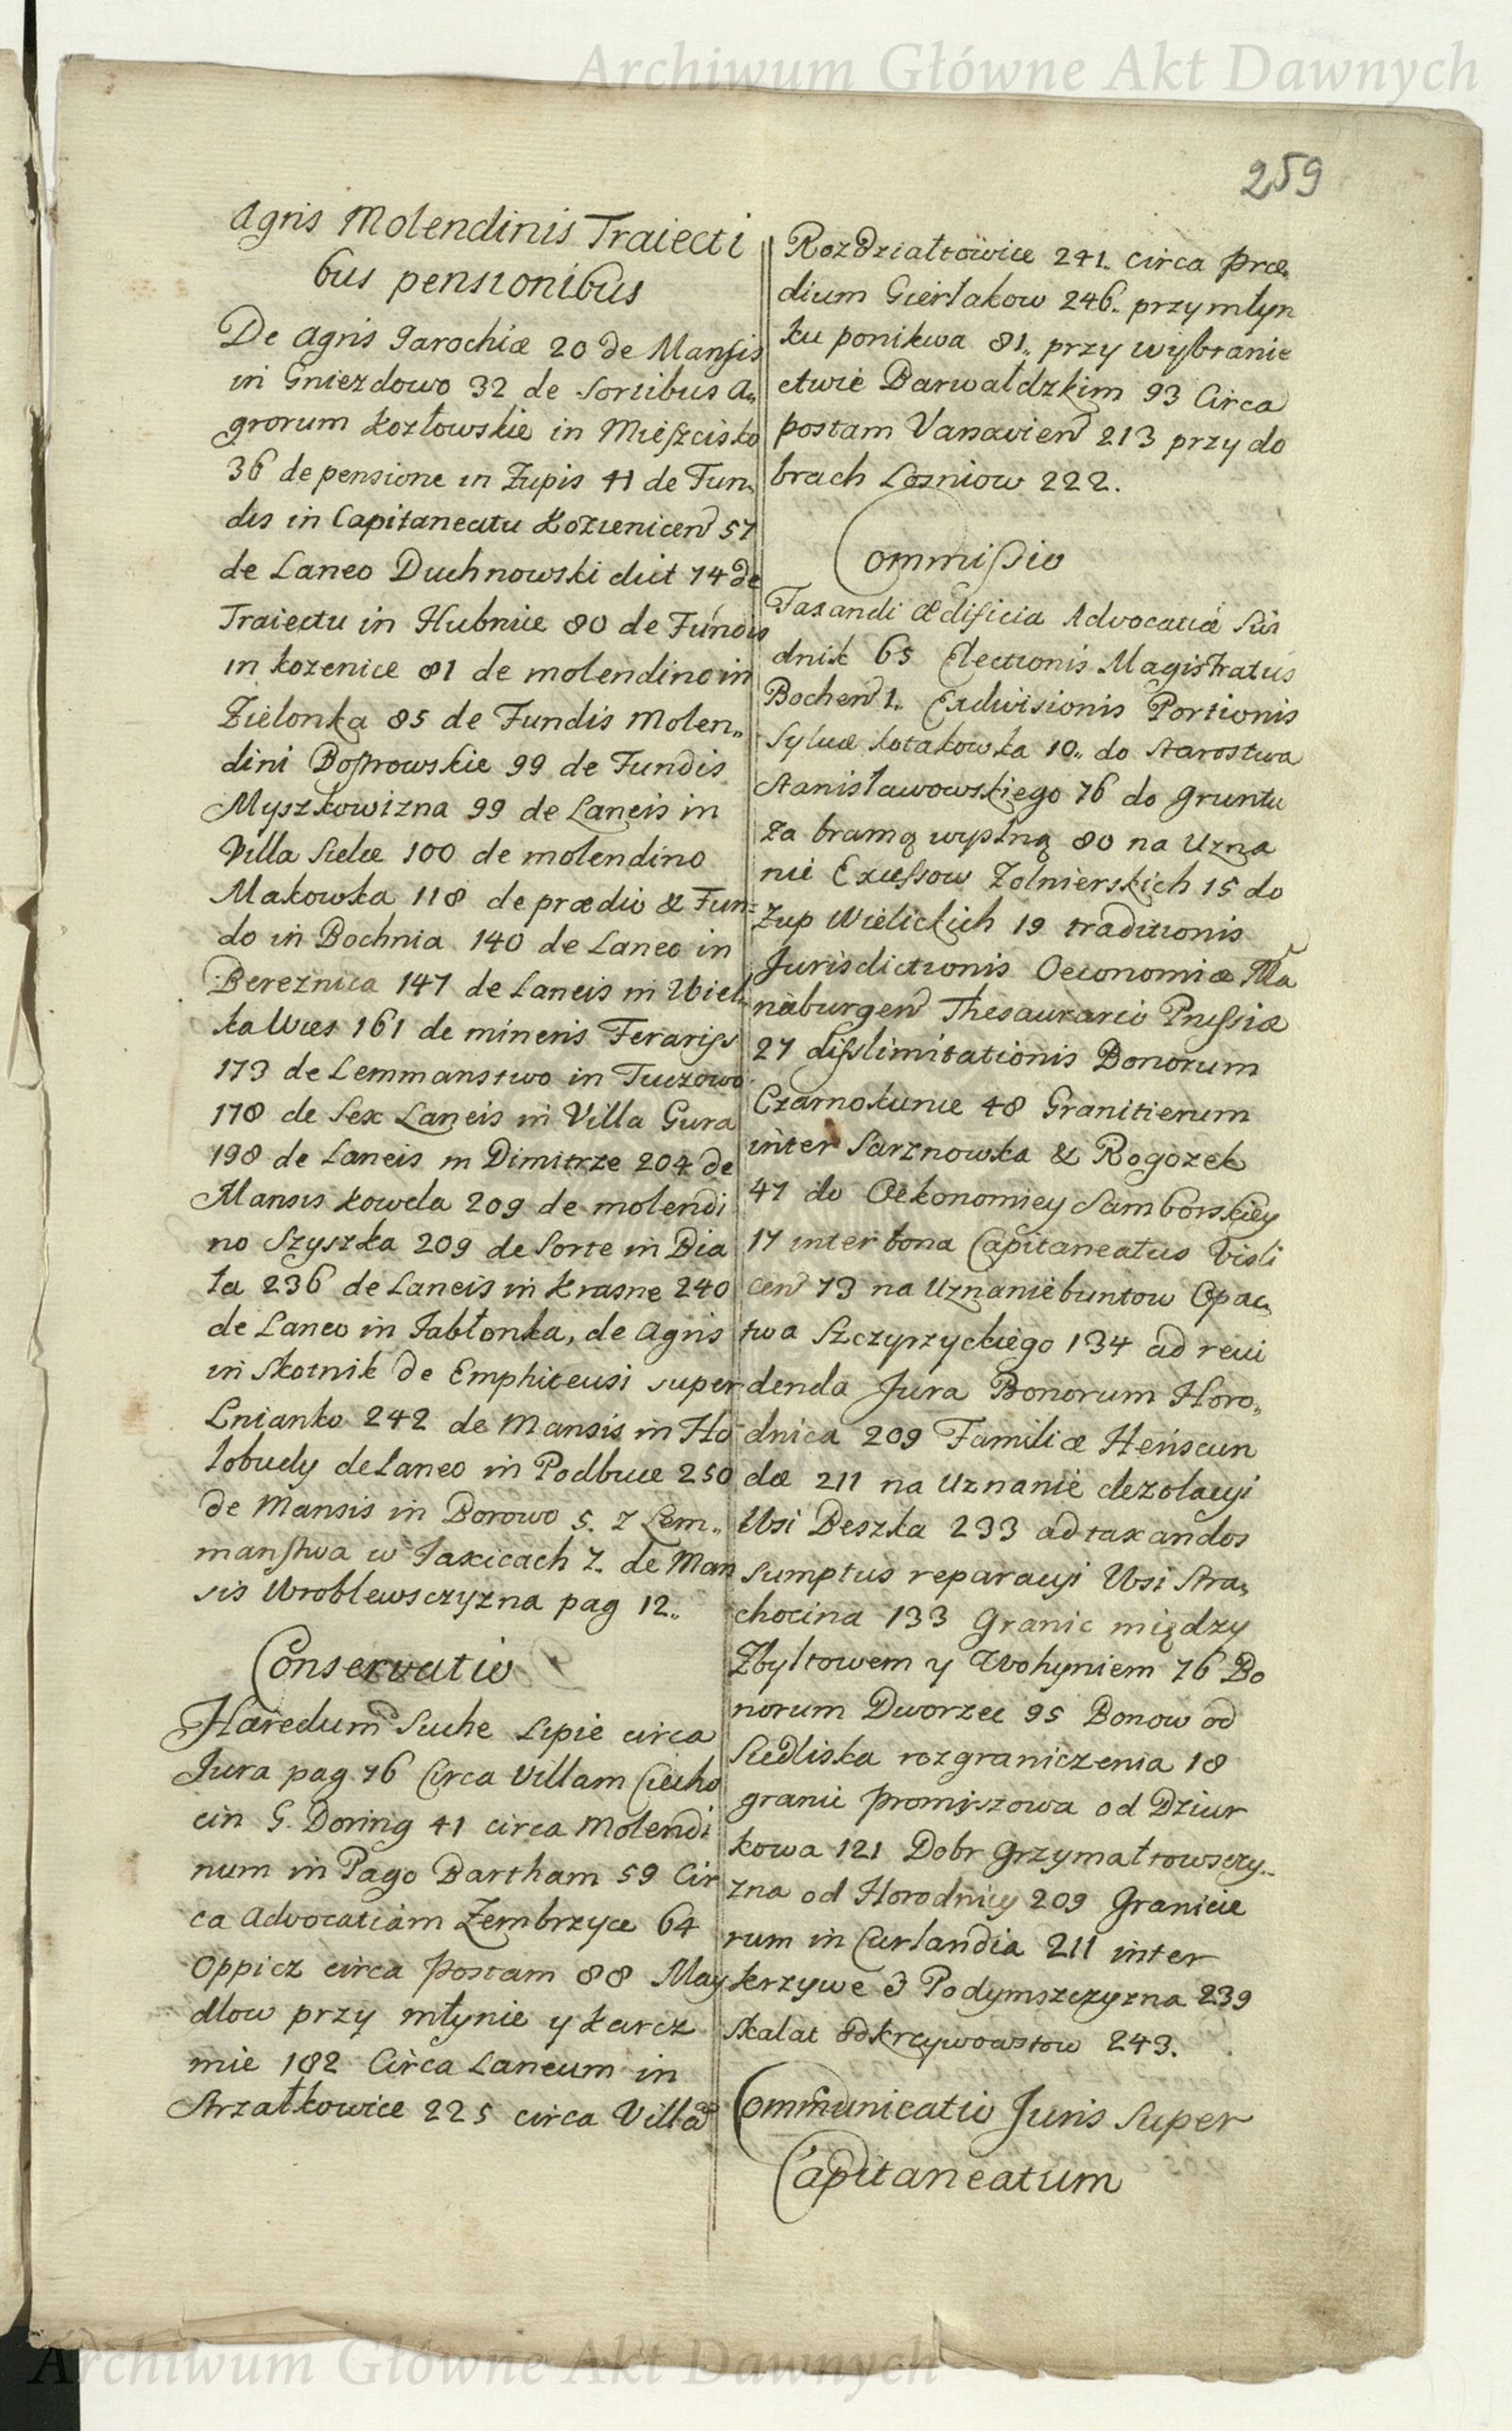 Archiwum Główne Akt Dawnych
259
Agris Molendinis Traiecti
bus pensionibus
De Agris Parochiæ 20 de Mansis
in Gniezdowo 32 de Sortibus A„
grorum Kozłowskie in Mieszcisko
36 de pensione in Zupis 41 de Fun„
dis in Capitaneatu Kozienicen 57
de Laneo Duchnowski dict 74 de
Traiectu in Hubnice 80 de Fundis
in Kozenice 81 de molendino in
Zielonka 85 de Fundis Molen„
dini Bostrowskie 99 de Fundis
Myszkowizna 99 de Laneis in
Villa Sielce 100 de molendino
Makowka 118 de prædio & Fun=
do in Bochnia 140 de Laneo in
Bereznica 147 de Laneis in Wiel„
ka Wies 161 de mineris Ferarijs
173 de Lemmanstwo in Tuczowo
178 de Sex Laneis in Villa Gura
198 de Laneis in Dimitrze 204 de
Mansis Kowela 209 de molendi
no Szyszka 209 de Sorte in Bia
ła 236 de Laneis in Krasne 240
de Laneo in Jabłonka, de Agris
in Skotnik de Emphiteusi super
Lnianko 242 de Mansis in Ho
łobudy de Laneo in Podbuce 250
de Mansis in Borowo 5. Z Lem„
manstwa w Jaxicach 7. de Man
sis Wroblewsczyzna pag 12„
Conservatio
Hæredum Suche Lipie circa
Jura pag 76 Circa Villam Ciecho
cin G. Doring 41 circa Molendi
num in Pago Bartham 59 Cir
ca Advocatiam Zembrzyce 64
Oppicz circa Postam 88 May
dlow przy młynie y karcz
mie 182 Circa Laneum in
Strzałkowice 225 circa Villã
Rozdziałowice 241„ circa Præ„
dium Gierlakow 246„ przy młyn
ku ponikwa 81„ przy wybranie
ctwie Barwałdzkim 93 Circa
postam Vanavien 213 przy do
brach Lozniow 222.
Commissio
Taxandi ædificia Advocatiæ Su
dnik 65 Electionis Magistratus
Bochen 1„ Exdivisionis Portionis
Sylvæ Kotakowka 10„ do Starostwa
Stanisławowskiego 76 do gruntu
Za bramą wyslną 80 na Uzna
nie Excessow Zolnierskich 15 do
Zup Wielickich 19 traditionis
Jurisdictionis Oeconomiæ Ma
rieburgen Thesaurario Prussiæ
27 disslimitationis Bonorum
Czarnokunce 48 Granitierum
inter Sarznowka & Rogozek
47 do Oekonomiey Samborskiey
17 inter bona Capitaneatus Visli
cen 73 na Uznanie buntow Opac„
twa Szczyrzyckiego 134 ad revi
denda Jura Bonorum Horo„
dnica 209 Familiæ Heriscun
dæ 211 na Uznanie dezolacyi
Wsi Beszka 233 ad taxandos
Sumptus reparacyi Wsi Stra„
chocina 133 Granic między
Zbyltowem y Wohyniem 76 Bo
norum Dworzec 95 Bonow od
Siedliska rozgraniczenia 18
granic Promiszowa od Dziur
kowa 121 Dobr Grzymałtowsczy„
zna od Horodnicy 209 Granicie
rum in Curlandia 211 inter
krzywe & Podymszczyzna 239
Skalat od Krzywowstow 243.
Communicatio Juris Super
Capitaneatum
Archiwum Główne Akt Dawnych